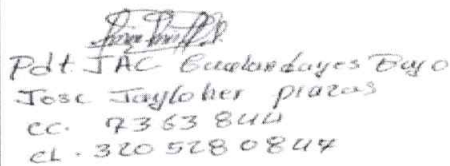 Pdt. JAC Gualandayes Bajo
Jose Jayloher plazas
cc. 7363844
CL. 3205280847